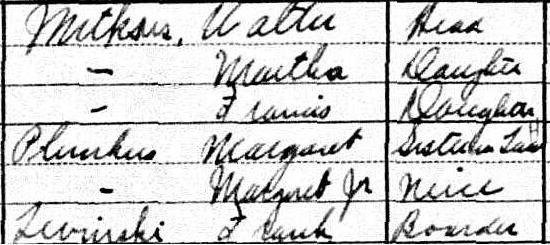 Mitksis, Walter Head
— Martha Daughter
— Francis Daughter
Plunkus Margaret Sister in Law
— Margaret Jr Neice
Levinski Frank Boarder